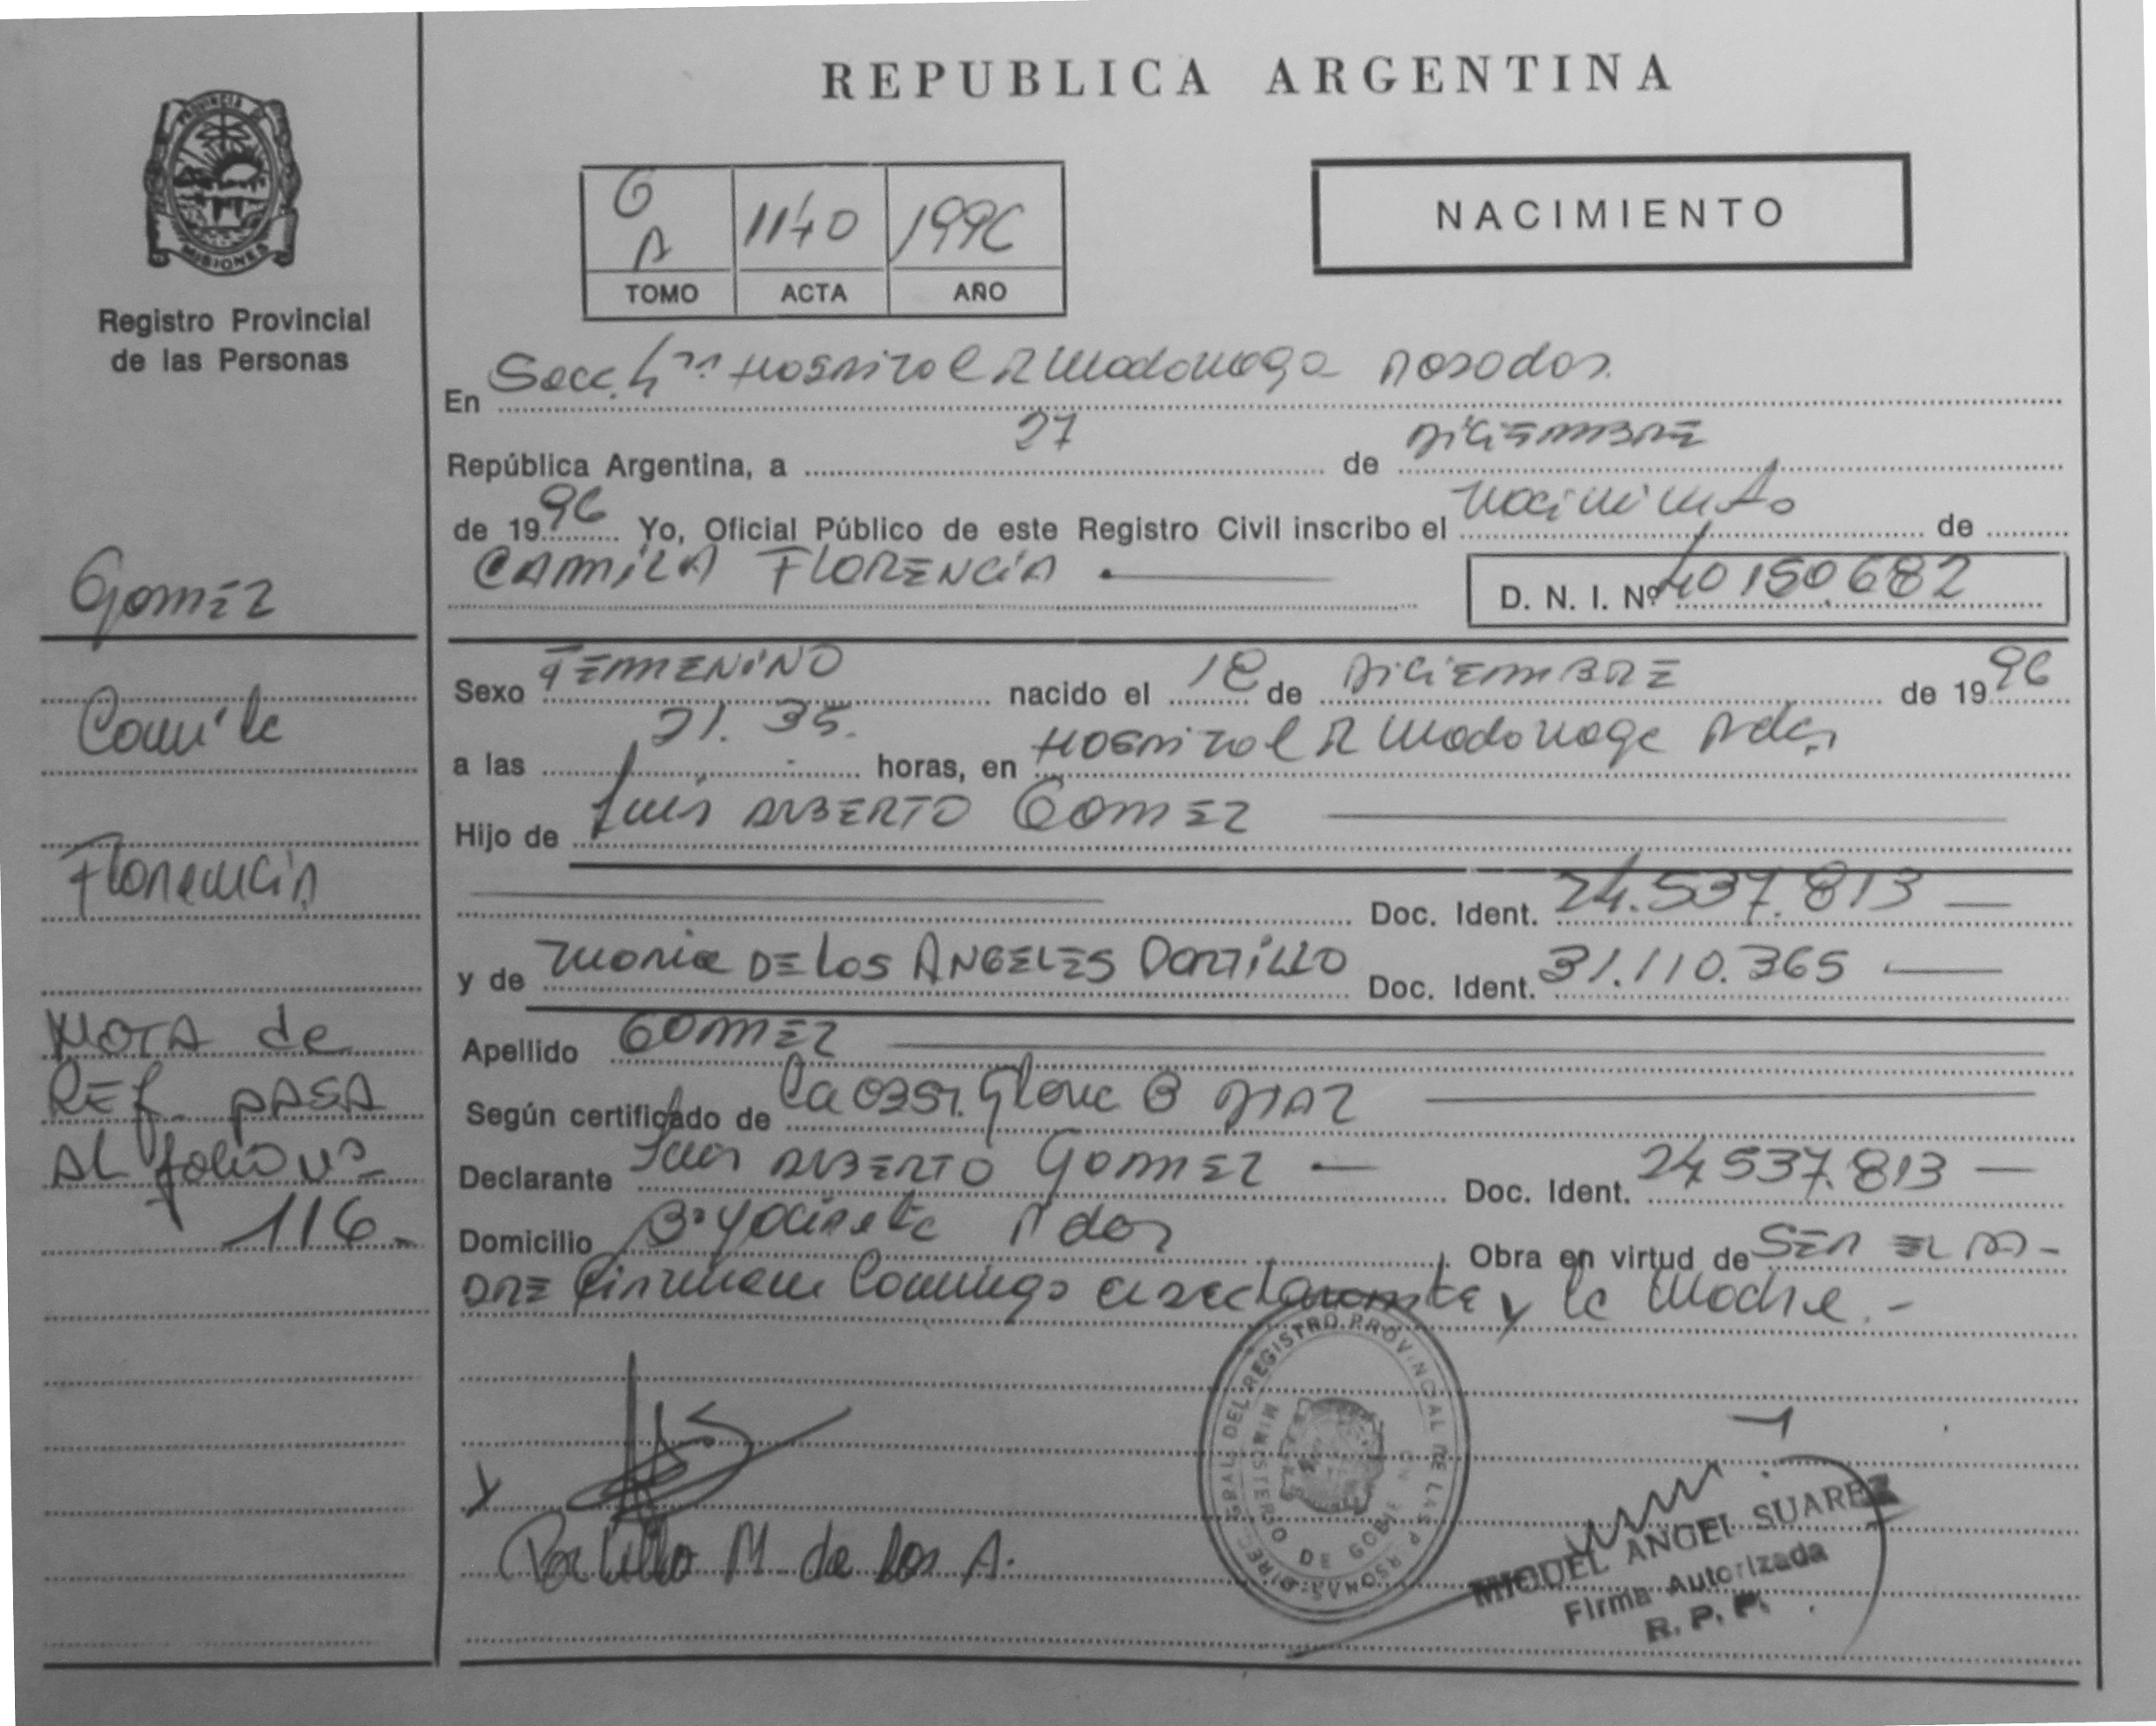 PROVINCIA DE
MISIONES
Registro Provincial
de las Personas
Gomez
Camila
Florencia
NOTA de
REF. PASA
AL folio Nº
116.-
REPUBLICA ARGENTINA
6 A 1140 1996
TOMO ACTA AÑO
NACIMIENTO
En Secc. Hospital R Madariaga Posadas.
República Argentina, a 27 de DICIEMBRE
de 1996 Yo, Oficial Público de este Registro Civil inscribo el Nacimiento de
CAMILA FLORENCIA.
D. N. I. Nº 40150.682
Sexo FEMENINO nacido el 18 de DICIEMBRE de 1996
a las 21.35. horas, en HOSPITAL R Madariaga Pdas
Hijo de Luis ALBERTO GOMEZ
Doc. Ident. 24.537.813 —
y de Maria DE LOS ANGELES PORTILLO Doc. Ident. 31.110.365 —
Apellido GOMEZ
Según certificado de La OBST. B DIAZ
Declarante Luis ALBERTO GOMEZ — Doc. Ident. 24.537.813 —
Domicilio Bº Yacireta Pdas Obra en virtud de SER EL PA-
DRE Firman Conmigo el declarante y la Madre.-
DIREC. GRAL. DEL REGISTRO PROVINCIAL DE LAS PERSONAS
MINISTERIO DE GOBIERNO
Portillo M. de los A.
MIGUEL ANGEL SUAREZ
Firma Autorizada
R. P. P.